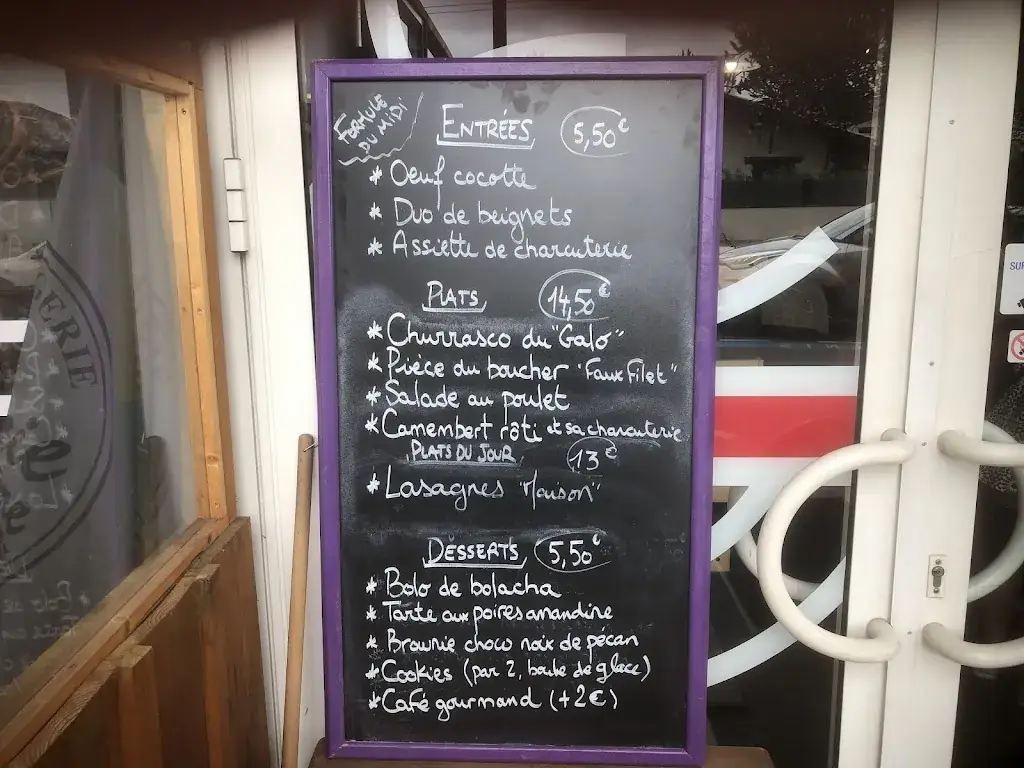 FORMULE
DU MIDI
ENTRÉES 5,50€
* Oeuf cocotte
* Duo de beignets
* Assiette de charcuterie
PLATS 14,50€
* Churrasco du "Galo"
* Pièce du boucher "Faux Filet"
* Salade au poulet
* Camembert rôti et sa charcuterie
PLATS DU JOUR 13€
* Lasagnes "Maison"
DESSERTS 5,50€
* Bolo de bolacha
* Tarte aux poires amandine
* Brownie choco noix de pécan
* Cookies (par 2, boule de glace)
* Café gourmand (+2€)
ERIE
SUR